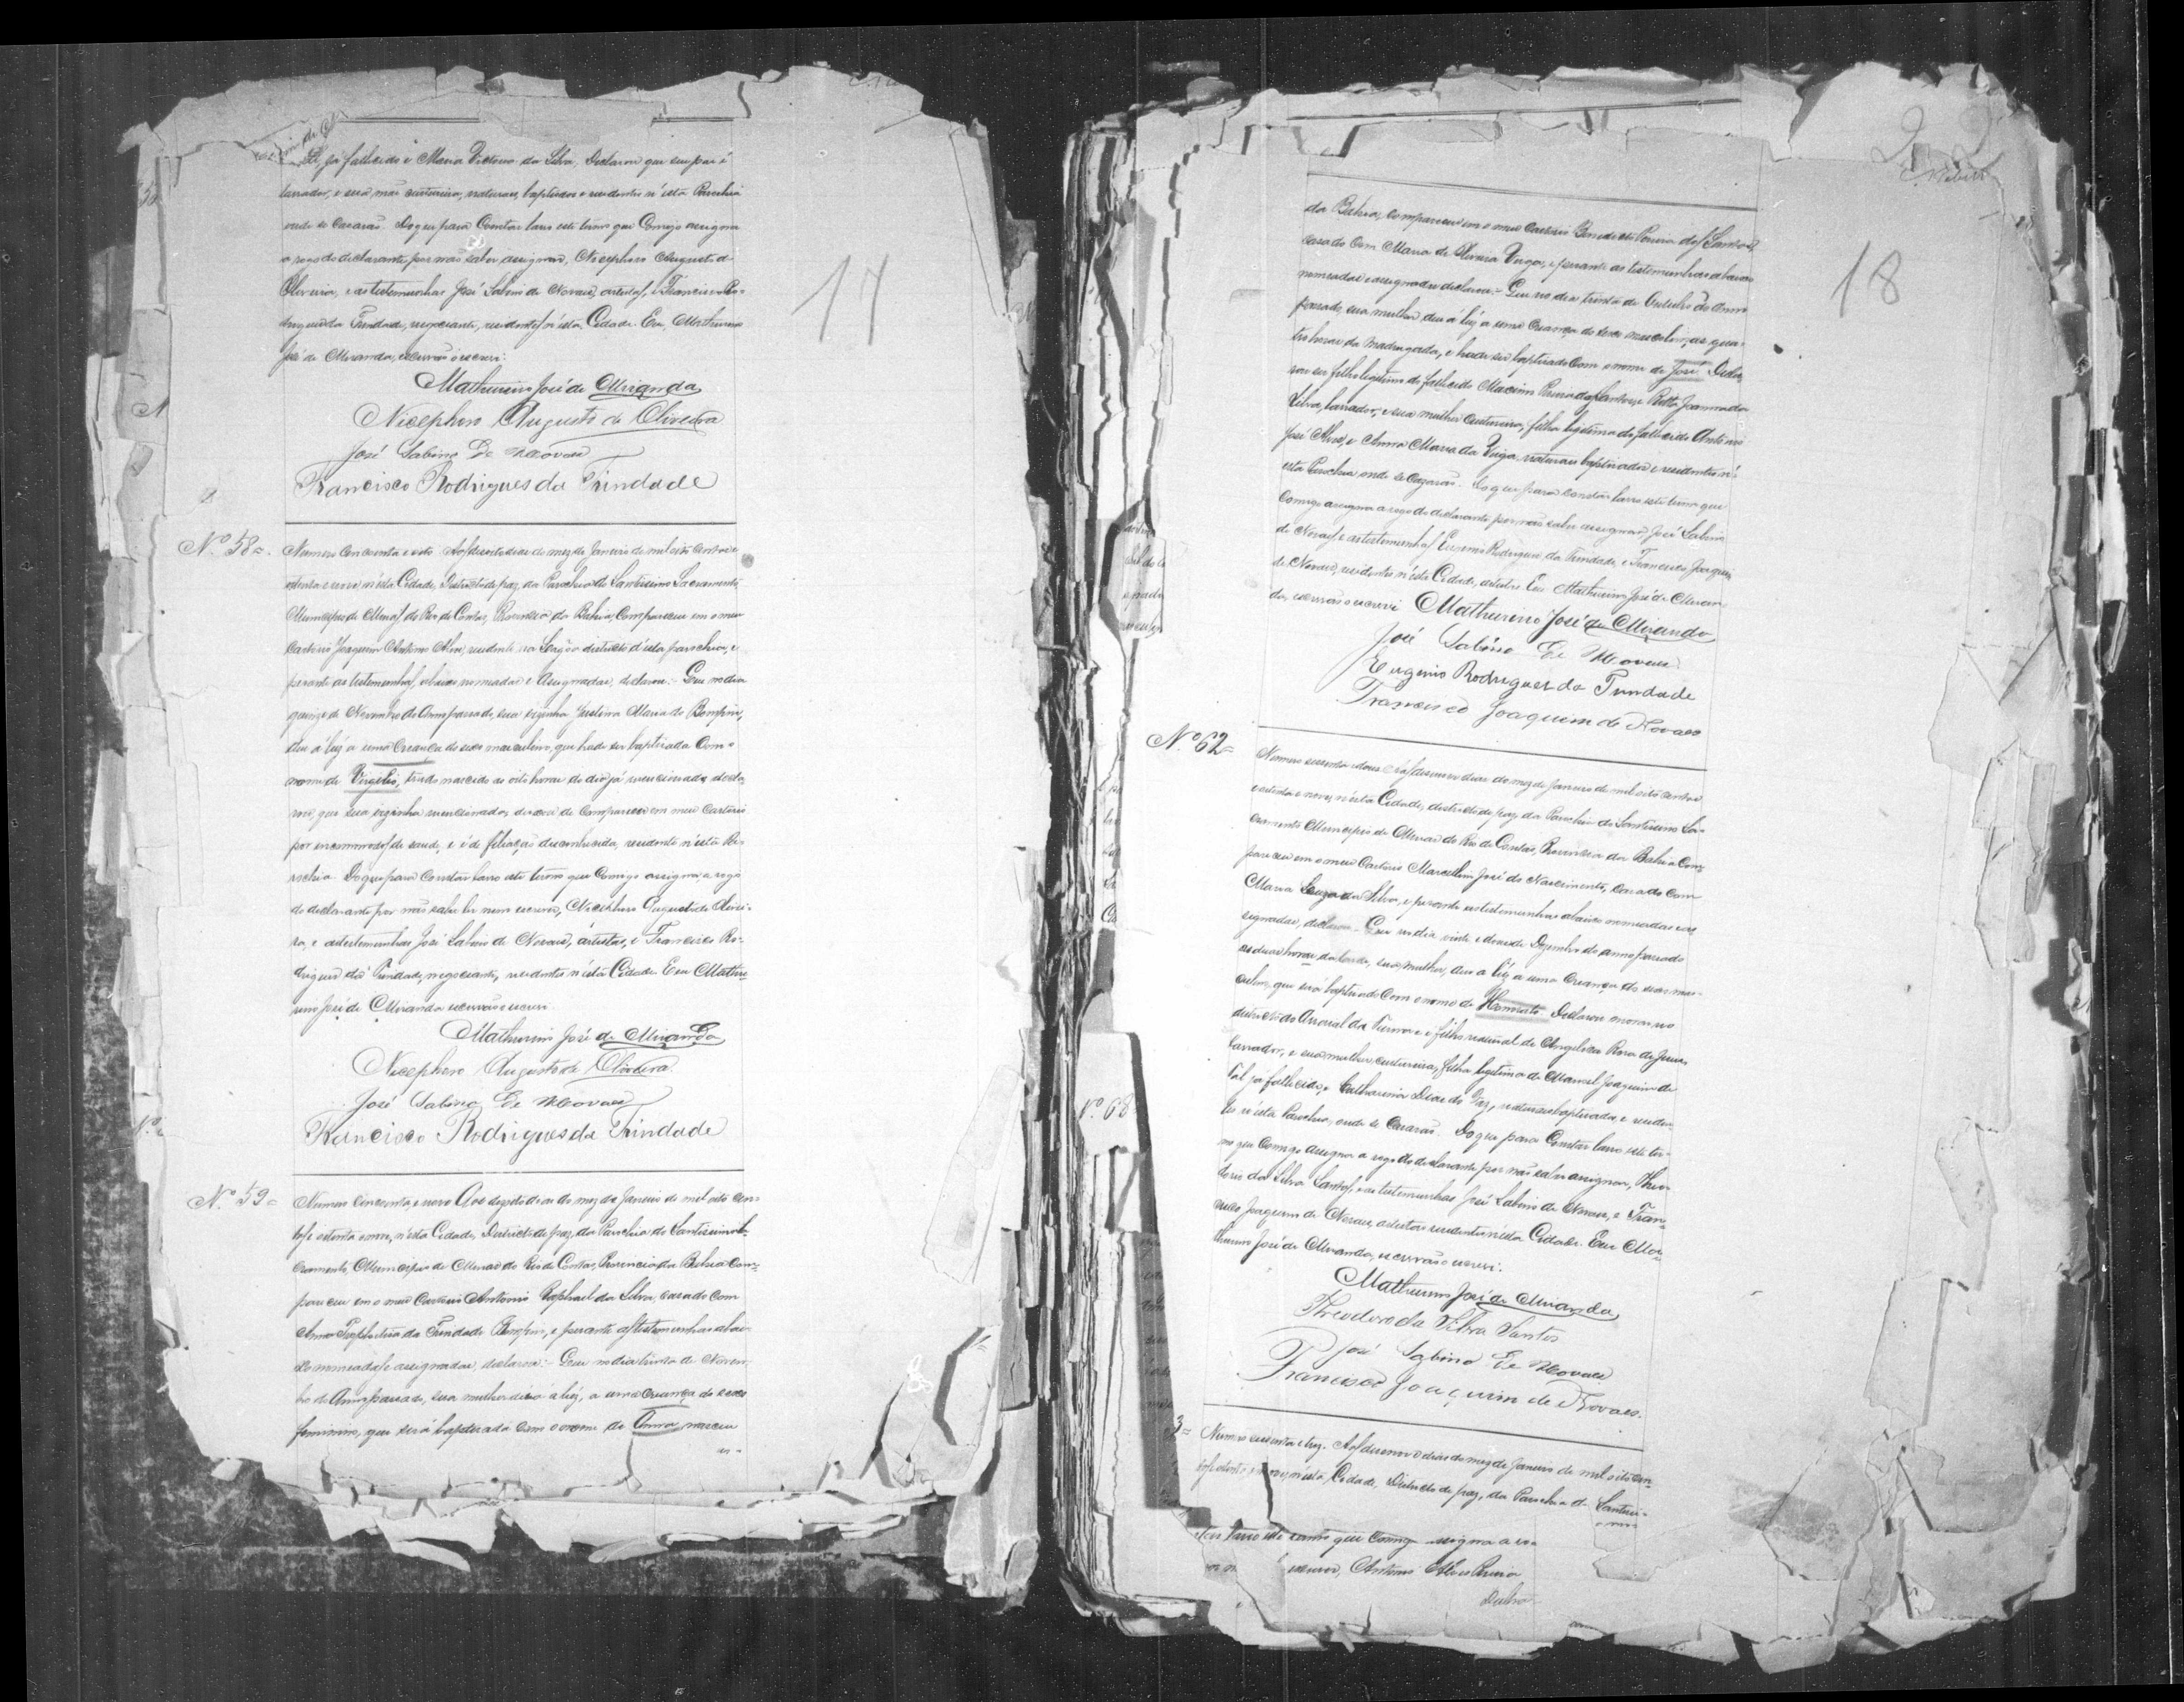 17
já fallecido e Maria Victoria da Silva, Declarou que seu pai é
lavrador, e sua mãi custureira, naturaes, baptisados e residentes n'esta Parochia
onde se casarão. Do que para constar lavro este termo que Comigo assigna
a rogo do declarante por não saber assignar, Nicephoro Augusto d'
Oliveira, e as testemunhas José Sabino de Novaes, artista, e Francisco Ro-
drigues da Trindade, negociante, residentes n'esta Cidade. Eu, Mathurino
José de Miranda, escrivão o escrevi.
Mathurino José de Miranda
Nicephoro Augusto de Oliveira
José Sabino De Novaes
Francisco Rodrigues da Trindade
Nº 58=
Numero cincoenta e oito. Aos desoito dias do mez de Janeiro de mil oito centos e
oitenta e nove n'esta Cidade, Districto de paz da Parochia do Santissimo Sacramento,
Municipio de Minas do Rio de Contas, Provincia da Bahia, Compareceu em o meu
Cartorio Joaquim Antonio Alves, residente no districto d'esta parochia, e
perante as testemunhas, abaixo nomiadas e assignadas, declarou:- Que no dia
quinze de Novembro do Anno passado, sua visinha Justina Maria do Bomfim,
deu á luz a uma Creança do sexo masculino, que hade ser baptisada Com o
nome de Virgilio, tendo nascido as oito horas do dia já mencionado, decla-
rou, que sua visinha mencionada, deixou de Comparecer em meu Cartorio
por incommodos de saude, e é de filiação desconhecida, residente n'esta Pa-
rochia. Do que para Constar lavro este termo que Comigo assigna, a rogo
do declarante por não saber ler nem escrever, Nicephoro Augusto de Olivei-
ra, e as testemunhas José Sabino de Novaes, artista, e Francisco Ro-
drigues da Trindade, negociante, residentes n'esta Cidade. Eu Mathu-
rino José de Miranda escrivão o escrevi.
Mathurino José de Miranda
Nicephoro Augusto de Oliveira.
José Sabino De Novaes
Francisco Rodrigues da Trindade
Nº 59=
Numero cincoenta, e nove. Aos desoito dias do mez de Janeiro de mil oito cen-
tos e oitenta e nove, n'esta Cidade, Districto de paz, da Parochia do Santissimo Sa-
cramento, Municipio de Minas do Rio de Contas, Provincia da Bahia Com-
pareceu em o meu Cartorio Antonio Raphael da Silva, casado com
Anna da Trindade Bomfim, e perante as testemunhas abai-
xo nomeadas e assignadas, declarou:- Que no dia trinta de Novem-
bro do Anno passado, sua mulher deu á luz, a uma Creança do sexo
feminino, que será baptisada com o nome de Anna, nasceu
18
da Bahia, compareceu em o meu Cartorio Benedicto Pereira dos Santos
casado Com Maria de Veiga, e perante as testemunhas abaixo
nomeadas e assignadas declarou:- Que no dia trinta de Outubro do Anno
passado, sua mulher deu á luz a uma Creança do sexo masculino, as qua-
tro horas da Madrugada, e hade ser baptisado Com o nome de José. Decla-
rou ser filho legitimo do fallecido Maximo Pereira dos Santos, e Ritta Joanna da
Silva, lavrador, e sua mulher Custureira, filha legitima do fallecido Antonio
José Alves, e Anna Maria da Veiga, naturaes baptisados e residentes n'
esta Parochia onde se Casarão. Do que para constar lavro este termo que
Comigo assigna a rogo do declarante por não saber assignar, José Sabino
de Novaes, e as testemunhas Eugenio Rodrigues da Trindade, e Francisco Joaquim
de Novaes, residentes n'esta Cidade, artistas. Eu Mathurino José de Miran-
da, escrivão o escrevi. Mathurino José de Miranda
José Sabino De Novaes
Eugenio Rodrigues da Trindade
Francisco Joaquim de Novaes
Nº 62=
Numero sessenta e dous. Aos desenove dias do mez de Janeiro de mil oito centos
e oitenta e nove, n'esta Cidade, districto de paz da Parochia do Santissimo Sa-
cramento Municipio de Minas do Rio de Contas, Provincia da Bahia Com-
pareceu em o meu Cartorio Marcellino José do Nascimento, casado Com
Maria Souza da Silva, e perante as testemunhas abaixo nomeadas e as-
signadas, declarou:- Que no dia vinte e dous de Dezembro do anno passado
as duas horas da tarde, sua mulher, deu á luz a uma Creança do sexo mas-
culino, que sera baptisado Com o nome de Honorato. Declarou morar no
districto do Arraial da Furna e é filho natural de Angelica Rosa de Jesus,
lavrador, e sua mulher, custureira, filha legitima de Manoel Joaquim de
tal já fallecido, e Catharina Dias da Paz, naturaes baptisados, e residen-
tes n'esta Parochia, onde se Casarão. Do que para Constar lavro este ter-
mo que Comigo assigna a rogo do declarante por não saber assignar, Theo-
doro da Silva Santos, e as testemunhas José Sabino de Novaes, e Fran-
cisco Joaquim de Novaes, artistas residentes n'esta Cidade. Eu Ma-
thurino José de Miranda, escrivão o escrevi.
Mathurino José de Miranda
Theodoro da Silva Santos
José Sabino De Novaes
Francisco Joaquim de Novaes.
3=
Numero sessenta e trez. Aos desenove dias do mez de Janeiro de mil oito cen-
tos e oitenta e nove, n'esta Cidade, Districto de paz, da Parochia do Santissi-
mo
lavro este termo que Comigo assigna a ro-
escrever, Antonio Alves Pereira
Nº 68